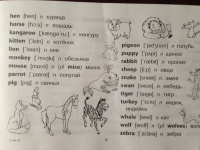 hen [hen] n курица
horse [hɔ:s] n лошадь
kangaroo [ˌkæŋgəˈru:] n кенгуру
kitten [ˈkɪtn] n котёнок
lion [ˈlaɪən] n лев
monkey [ˈmʌŋkɪ] n обезьяна
mouse [maʊs] n (pl mice) мышь
parrot [ˈpærət] n попугай
pig [pɪg] n свинья
pigeon [ˈpɪdʒɪn] n голубь
puppy [ˈpʌpɪ] n щенок
rabbit [ˈræbɪt] n кролик
sheep [ʃi:p] n овца
snake [sneɪk] n змея
swan [swɒn] n лебедь
tiger [ˈtaɪgə] n тигр
turkey [ˈtɜ:kɪ] n индюк,
индейка
whale [weɪl] n кит
wolf [wʊlf] n (pl wolves) волк
zebra [ˈzebrə] n зебра